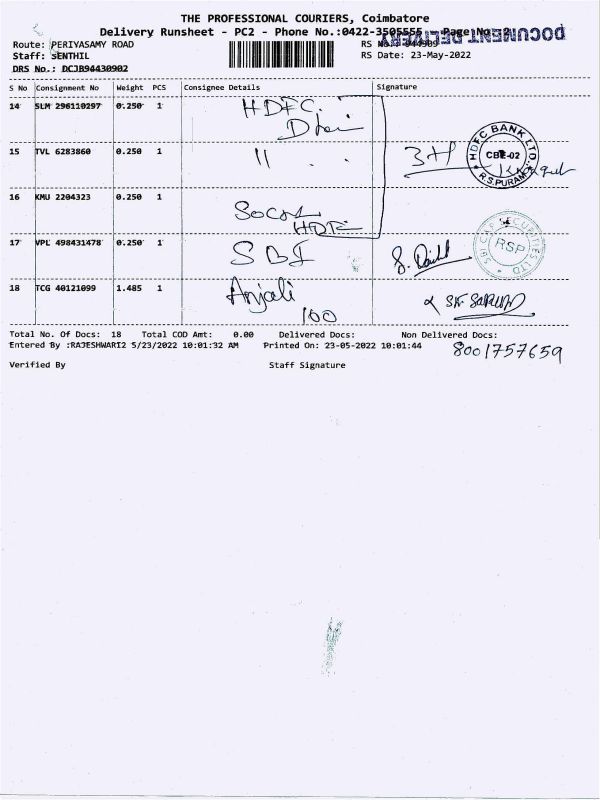 THE PROFESSIONAL COURIERS, Coimbatore
Delivery Runsheet - PC2 - Phone No.:0422-3505555 Page No. 2
DOCUMENT DELIVERY
Route: PERIYASAMY ROAD
RS No.:
Staff: SENTHIL
RS Date: 23-May-2022
DRS No.: DCJB94430902
S No Consignment No Weight PCS Consignee Details Signature
14 SLM 296110297 0.250 1 HDFC
15 TVL 6283860 0.250 1 11
HDFC BANK LTD. CBE-02 R.S.PURAM
16 KMU 2204323 0.250 1
17 VPL 498431478 0.250 1 SBI
SBI CAP SECURITIES LTD RSP
18 TCG 40121099 1.485 1 Anjali
100
Total No. Of Docs: 18 Total COD Amt: 0.00 Delivered Docs: Non Delivered Docs:
Entered By :RAJESHWARI2 5/23/2022 10:01:32 AM Printed On: 23-05-2022 10:01:44
8001757659
Verified By Staff Signature